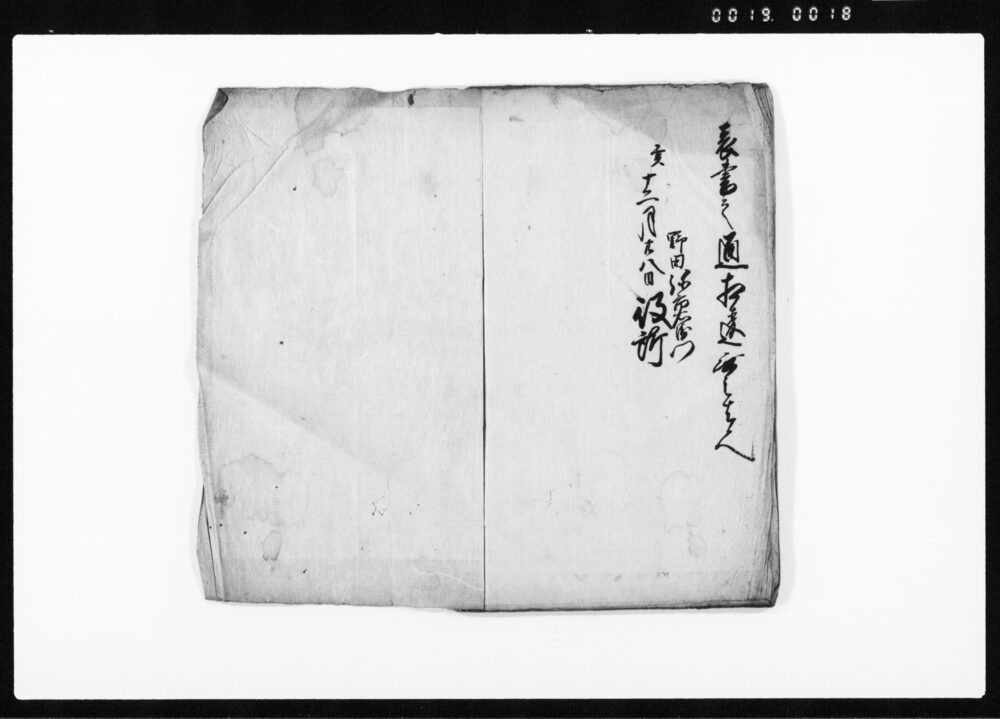 0019. 0018
表書之通相違無之者也
亥十二月廿八日
野田弥市右衛門
役所